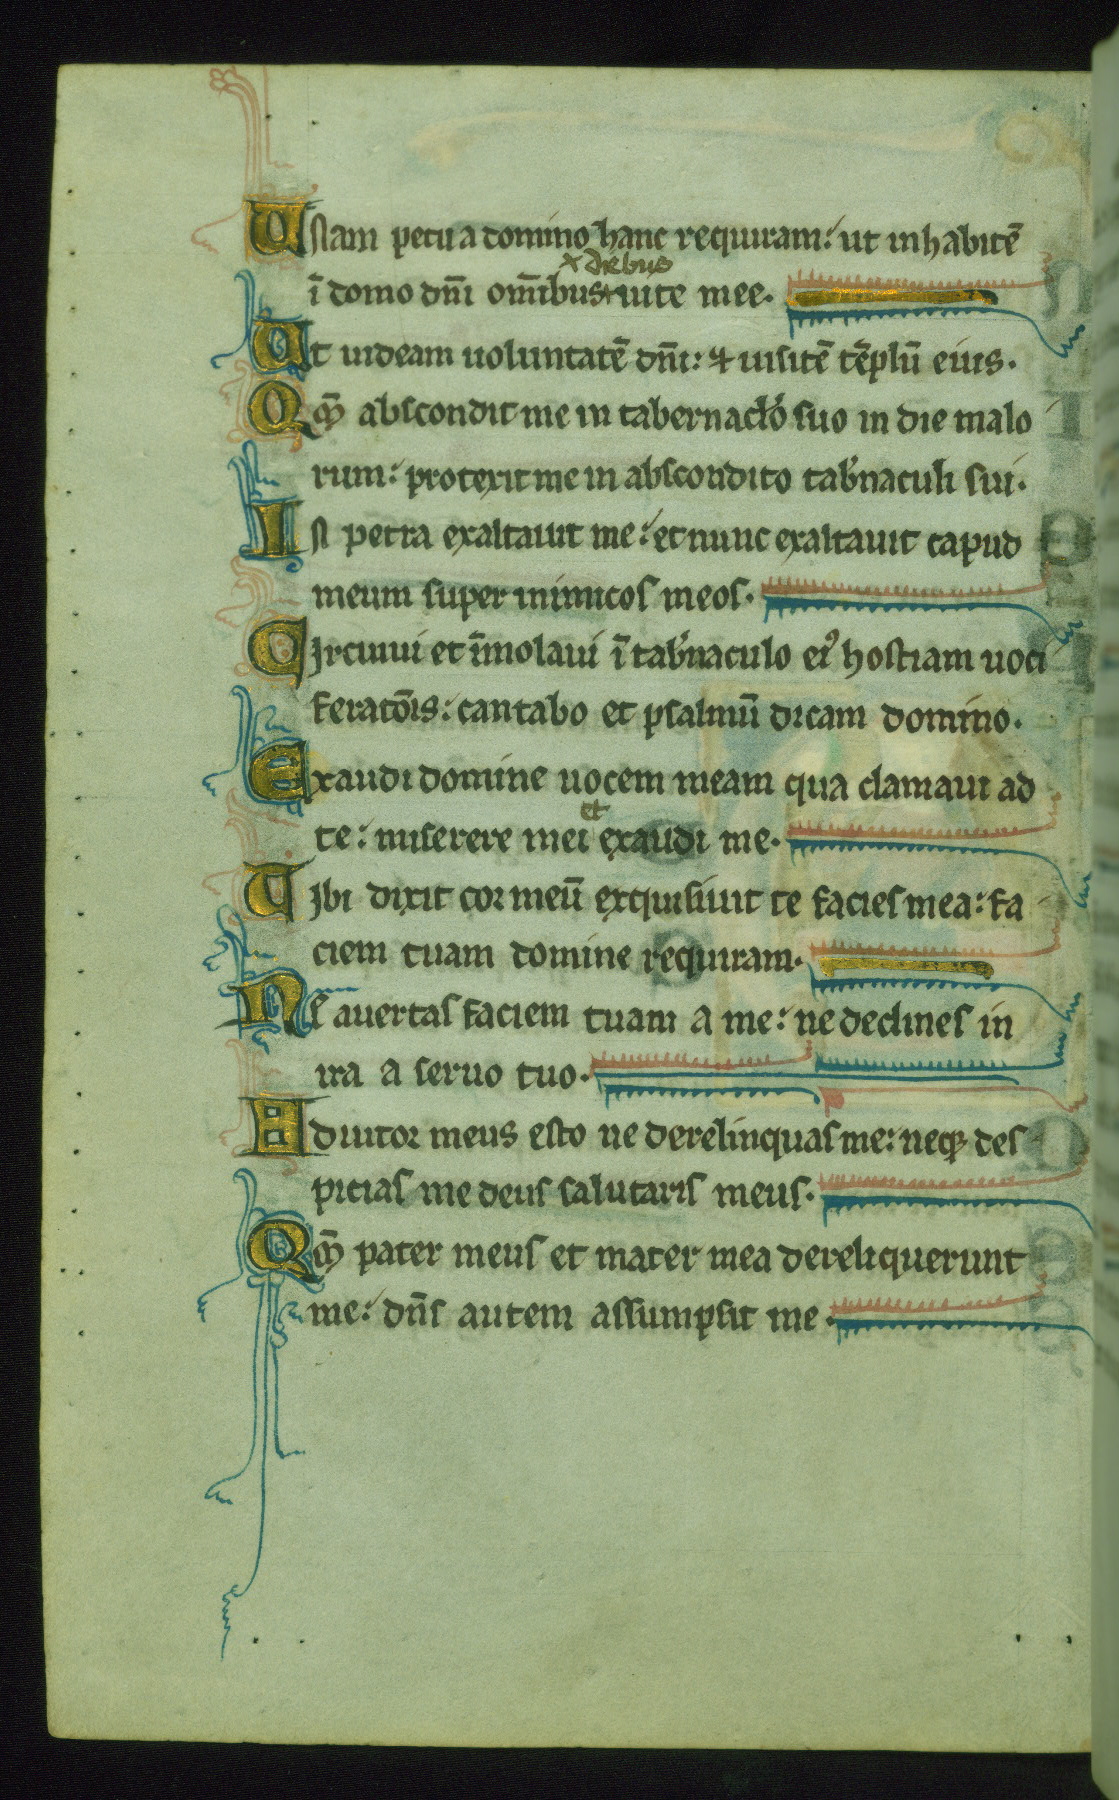 Unam petii a domino hanc requiram: ut inhabitē
x diebus
ī domo dn̄i om̄ibus x uite mee.
Ut uideam uoluntatē dn̄i: ⁊ uisitē tēplū eius.
Qm̄ abscondit me in tabernaclo suo in die malo
rum: protexit me in abscondito tab'naculi sui.
In petra exaltauit me: et nunc exaltauit capud
meum super inimicos meos.
Circuiui et īmolaui ī tab'naculo ei' hostiam uoci
feratōis: cantabo et psalmū dicam domino.
Exaudi domine uocem meam qua clamaui ad
et
te: miserere mei exaudi me.
Tibi dixit cor meū exquisiuit te facies mea: fa
ciem tuam domine requiram.
Ne auertas faciem tuam a me: ne declines in
ira a seruo tuo.
Adiutor meus esto ne derelinquas me: neqꝫ des
picias me deus salutaris meus.
Qm̄ pater meus et mater mea dereliquerunt
me: dn̄s autem assumpsit me.